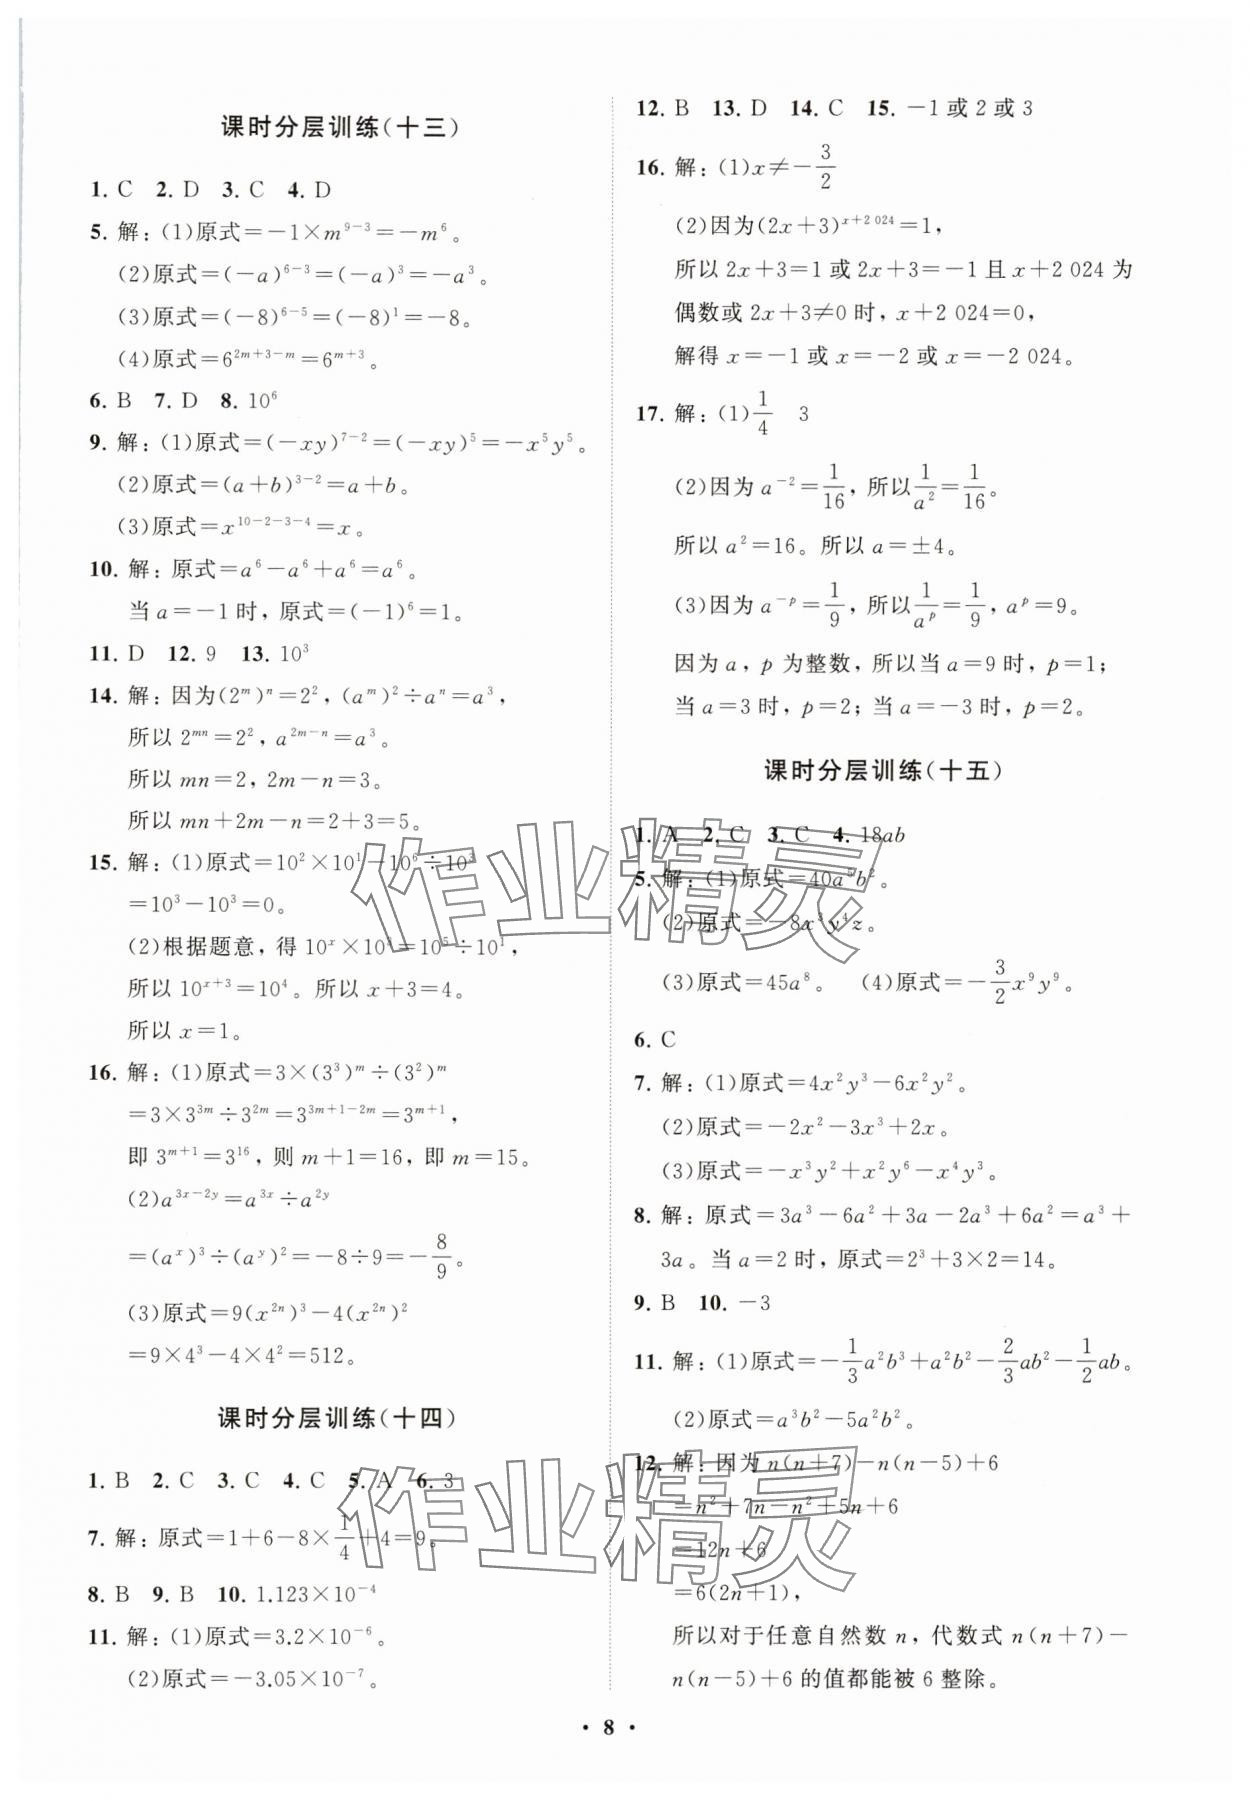 课时分层训练(十三)
1. C 2. D 3. C 4. D
5. 解:(1)原式=-1×m⁹⁻³=-m⁶。
(2)原式=(-a)⁶⁻³=(-a)³=-a³。
(3)原式=(-8)⁶⁻⁵=(-8)¹=-8。
(4)原式=6²ᵐ⁺³⁻ᵐ=6ᵐ⁺³。
6. B 7. D 8. 10⁶
9. 解:(1)原式=(-xy)⁷⁻²=(-xy)⁵=-x⁵y⁵。
(2)原式=(a+b)³⁻²=a+b。
(3)原式=x¹⁰⁻²⁻³⁻⁴=x。
10. 解:原式=a⁶-a⁶+a⁶=a⁶。
当a=-1时,原式=(-1)⁶=1。
11. D 12. 9 13. 10³
14. 解:因为(2ᵐ)ⁿ=2²,(aᵐ)²÷aⁿ=a³,
所以2ᵐⁿ=2²,a²ᵐ⁻ⁿ=a³。
所以mn=2,2m-n=3。
所以mn+2m-n=2+3=5。
15. 解:(1)原式=10²×10¹-10⁶÷10³
=10³-10³=0。
(2)根据题意,得10ˣ×10³=10⁵÷10¹,
所以10ˣ⁺³=10⁴。所以x+3=4。
所以x=1。
16. 解:(1)原式=3×(3³)ᵐ÷(3²)ᵐ
=3×3³ᵐ÷3²ᵐ=3³ᵐ⁺¹⁻²ᵐ=3ᵐ⁺¹,
即3ᵐ⁺¹=3¹⁶,则m+1=16,即m=15。
(2)a³ˣ⁻²ʸ=a³ˣ÷a²ʸ
=(aˣ)³÷(aʸ)²=-8÷9=-8/9。
(3)原式=9(x²ⁿ)³-4(x²ⁿ)²
=9×4³-4×4²=512。
课时分层训练(十四)
1. B 2. C 3. C 4. C 5. A 6. 3
7. 解:原式=1+6-8×1/4+4=9。
8. B 9. B 10. 1.123×10⁻⁴
11. 解:(1)原式=3.2×10⁻⁶。
(2)原式=-3.05×10⁻⁷。
12. B 13. D 14. C 15. -1或2或3
16. 解:(1)x≠-3/2
(2)因为(2x+3)ˣ⁺²⁰²⁴=1,
所以2x+3=1或2x+3=-1且x+2 024为
偶数或2x+3≠0时,x+2 024=0,
解得x=-1或x=-2或x=-2 024。
17. 解:(1)1/4 3
(2)因为a⁻²=1/16,所以1/a²=1/16。
所以a²=16。所以a=±4。
(3)因为a⁻ᵖ=1/9,所以1/aᵖ=1/9,aᵖ=9。
因为a,p为整数,所以当a=9时,p=1;
当a=3时,p=2;当a=-3时,p=2。
课时分层训练(十五)
1. A 2. C 3. C 4. 18ab
5. 解:(1)原式=40a⁵b²。
(2)原式=-8x³y⁴z。
(3)原式=45a⁸。 (4)原式=-3/2x⁹y⁹。
6. C
7. 解:(1)原式=4x²y³-6x²y²。
(2)原式=-2x²-3x³+2x。
(3)原式=-x³y²+x²y⁶-x⁴y³。
8. 解:原式=3a³-6a²+3a-2a³+6a²=a³+
3a。当a=2时,原式=2³+3×2=14。
9. B 10. -3
11. 解:(1)原式=-1/3a²b³+a²b²-2/3ab²-1/2ab。
(2)原式=a³b²-5a²b²。
12. 解:因为n(n+7)-n(n-5)+6
=n²+7n-n²+5n+6
=12n+6
=6(2n+1),
所以对于任意自然数n,代数式n(n+7)-
n(n-5)+6的值都能被6整除。
• 8 •
作业精灵
作业精灵